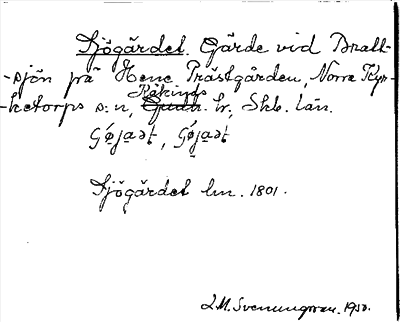 Sjögärdet. Gärde vid Bratt-
-sjön på Hene Prästgården, Norra Kyr-
-ketorps s:n, Kåkinds hr, Skb. län.
Sjögärdet lm. 1801.
J. M. Svenungsson. 1930.